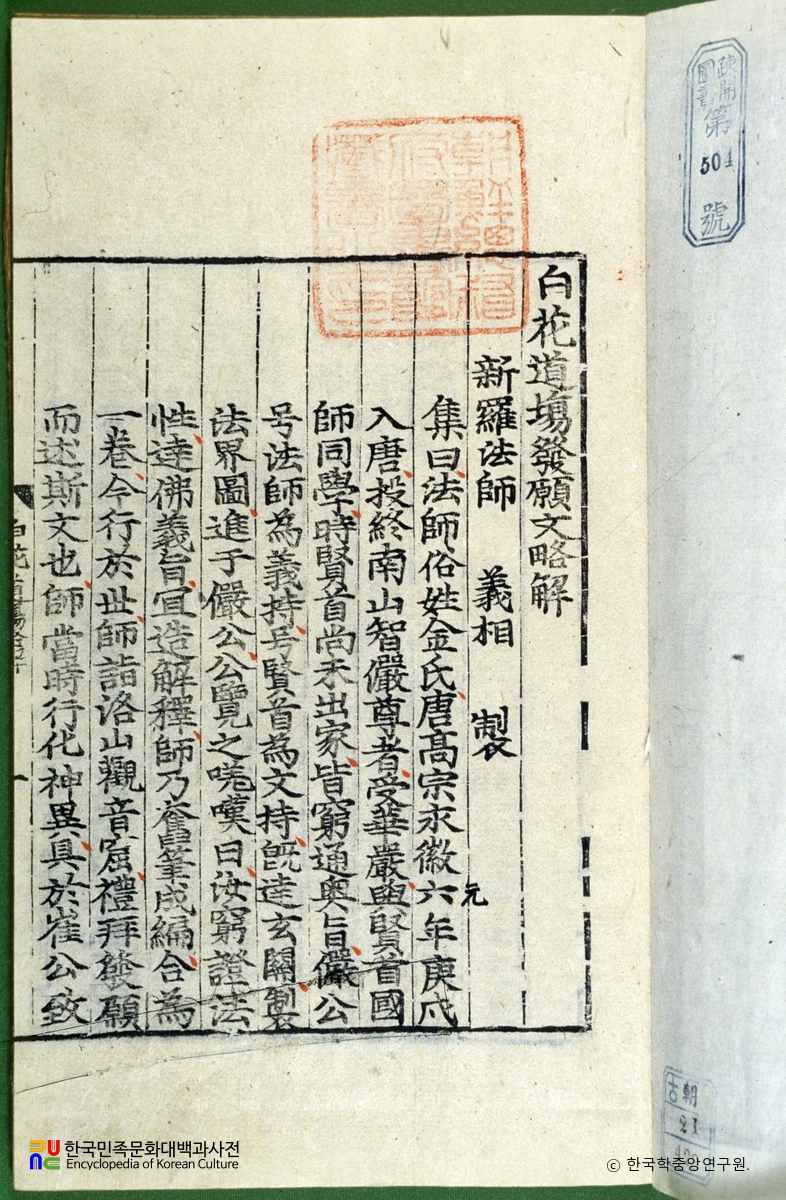 白花道場發願文略解
新羅法師 義相 製
集曰法師俗姓金氏唐高宗永徽六年庚戌
元
入唐投終南山智儼尊者受華嚴與賢首國
師同學時賢首尚未出家皆窮通奧旨儼公
号法師為義持号賢首為文持旣達玄關製
法界圖進于儼公公覽之嘆曰汝窮證法
性達佛義旨宜造解釋師乃奮筆成編合為
一卷今行於世師詣洛山觀音窟禮拜發願
而述斯文也師當時行化神異具於崔公致
白花道場
一
疎開
圖書
第
504
號
朝
古
21
한국민족문화대백과사전
Encyclopedia of Korean Culture
ⓒ 한국학중앙연구원.